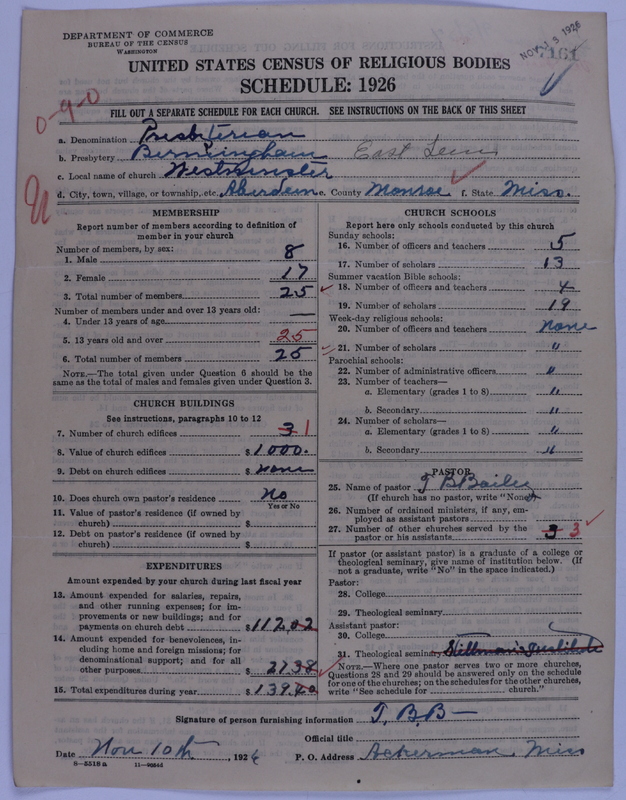 DEPARTMENT OF COMMERCE
BUREAU OF THE CENSUS
WASHINGTON
NOV 13 1926
7161
UNITED STATES CENSUS OF RELIGIOUS BODIES
SCHEDULE: 1926
FILL OUT A SEPARATE SCHEDULE FOR EACH CHURCH. SEE INSTRUCTIONS ON THE BACK OF THIS SHEET
0-9-0
a. Denomination Presbyterian
b. Presbytery Birmingham East
c. Local name of church Westminster
d. City, town, village, or township, etc. Aberdeen e. County Monroe f. State Miss.
MEMBERSHIP
Report number of members according to definition of
member in your church
Number of members, by sex:
1. Male 8
2. Female 17
3. Total number of members 25
Number of members under and over 13 years old:
4. Under 13 years of age —
5. 13 years old and over 25
6. Total number of members 25
NOTE.—The total given under Question 6 should be
same as the total of males and females given under Question 3.
CHURCH BUILDINGS
See instructions, paragraphs 10 to 12
7. Number of church edifices 3 1
8. Value of church edifices $ 1000.
9. Debt on church edifices $ none
10. Does church own pastor's residence No
Yes or No
11. Value of pastor's residence (if owned by
church) $
12. Debt on pastor's residence (if owned by
church) $
EXPENDITURES
Amount expended by your church during last fiscal year
13. Amount expended for salaries, repairs,
and other running expenses; for im-
provements or new buildings; and for
payments on church debt $ 112.02
14. Amount expended for benevolences, in-
cluding home and foreign missions; for
denominational support; and for all
other purposes $ 27.38
15. Total expenditures during year $ 139.40
CHURCH SCHOOLS
Report here only schools conducted by this church
Sunday schools:
16. Number of officers and teachers 5
17. Number of scholars 13
Summer vacation Bible schools:
18. Number of officers and teachers 4
19. Number of scholars 19
Week-day religious schools:
20. Number of officers and teachers none
21. Number of scholars "
Parochial schools:
22. Number of administrative officers "
23. Number of teachers—
a. Elementary (grades 1 to 8) "
b. Secondary "
24. Number of scholars—
a. Elementary (grades 1 to 8) "
b. Secondary "
PASTOR
25. Name of pastor T B Bailey
(If church has no pastor, write "None")
26. Number of ordained ministers, if any, em-
ployed as assistant pastors
27. Number of other churches served by the
pastor or his assistants 3 3
If pastor (or assistant pastor) is a graduate of a college or
theological seminary, give name of institution below. (If
not a graduate, write "No" in the space indicated.)
Pastor:
28. College
29. Theological seminary
Assistant pastor:
30. College
31. Theological seminary Stillman Institute
NOTE.—Where one pastor serves two or more churches,
Questions 28 and 29 should be answered only on the schedule
for one of the churches; on the schedules for the other churches,
write "See schedule for church."
Signature of person furnishing information T. B. B—
Official title
Date Nov 10th, 1926 P. O. Address Ackerman, Miss
8—5518 a 11—9054d